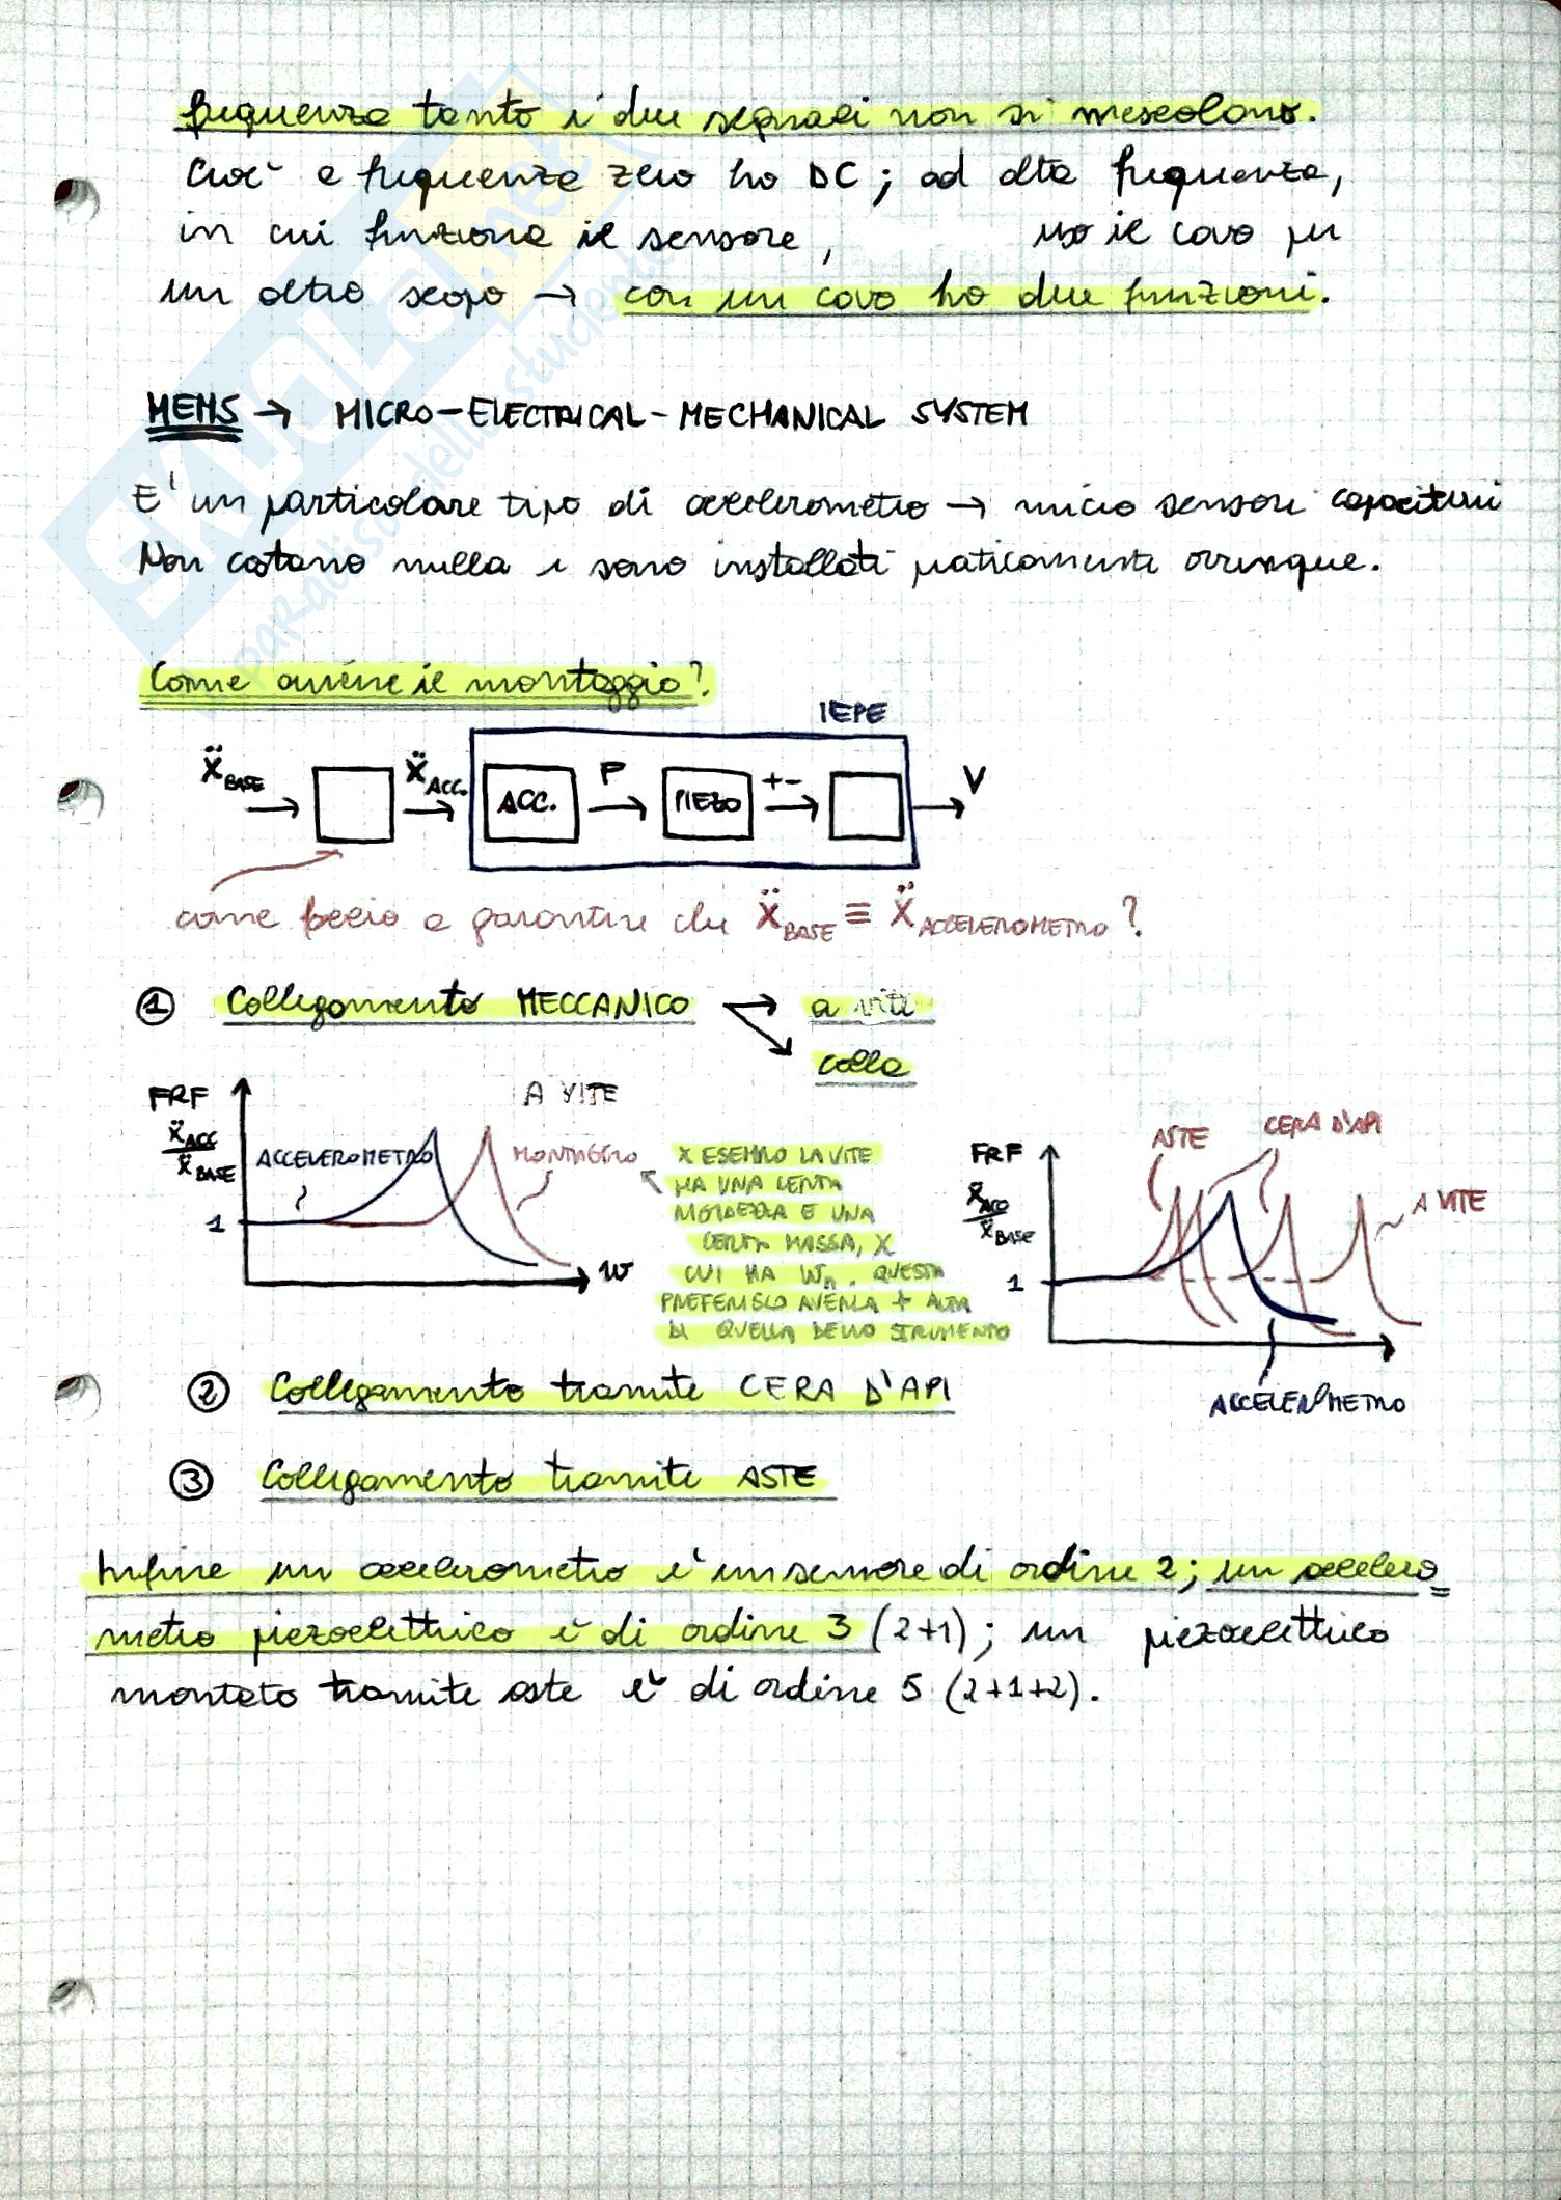 frequenza tanto i due segnali non si mescolano.
Cioè a frequenza zero ho DC; ad alta frequenza,
in cui funziona il sensore, uso il cavo per
un altro scopo → con un cavo ho due funzioni.
MEMS → MICRO-ELECTRICAL-MECHANICAL SYSTEM
E' un particolare tipo di accelerometro → micro sensori capacitivi
Non costano nulla e sono installati praticamente ovunque.
Come avviene il montaggio?
IEPE
Ẍ BASE → Ẍ ACC. → ACC. P → PIEZO +- → V
come faccio a garantire che Ẍ BASE ≡ Ẍ ACCELEROMETRO?
① Collegamento MECCANICO → a viti
colla
FRF
Ẍ ACC
Ẍ BASE
A VITE
ACCELEROMETRO
MONTAGGIO
1
W
X ESEMPIO LA VITE
HA UNA CERTA
MOLLEZZA E UNA
CERTA MASSA, X
CUI HA Wn. QUESTA
PREFERISCO AVERLA + ALTA
DI QUELLA DELLO STRUMENTO
FRF
Ẍ ACC
Ẍ BASE
ASTE
CERA D'API
A VITE
1
ACCELEROMETRO
② Collegamento tramite CERA D'API
③ Collegamento tramite ASTE
Infine un accelerometro è un sensore di ordine 2; un accelero=
metro piezoelettrico è di ordine 3 (2+1); un piezoelettrico
montato tramite aste è di ordine 5 (2+1+2).